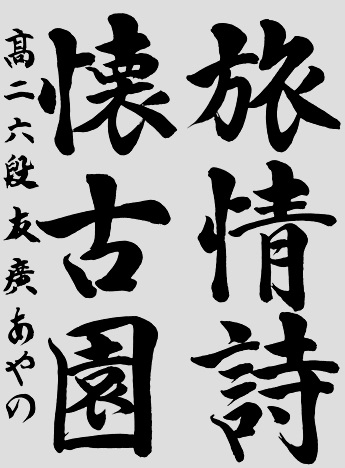 旅情詩
懐古園
高二六段友廣あやの